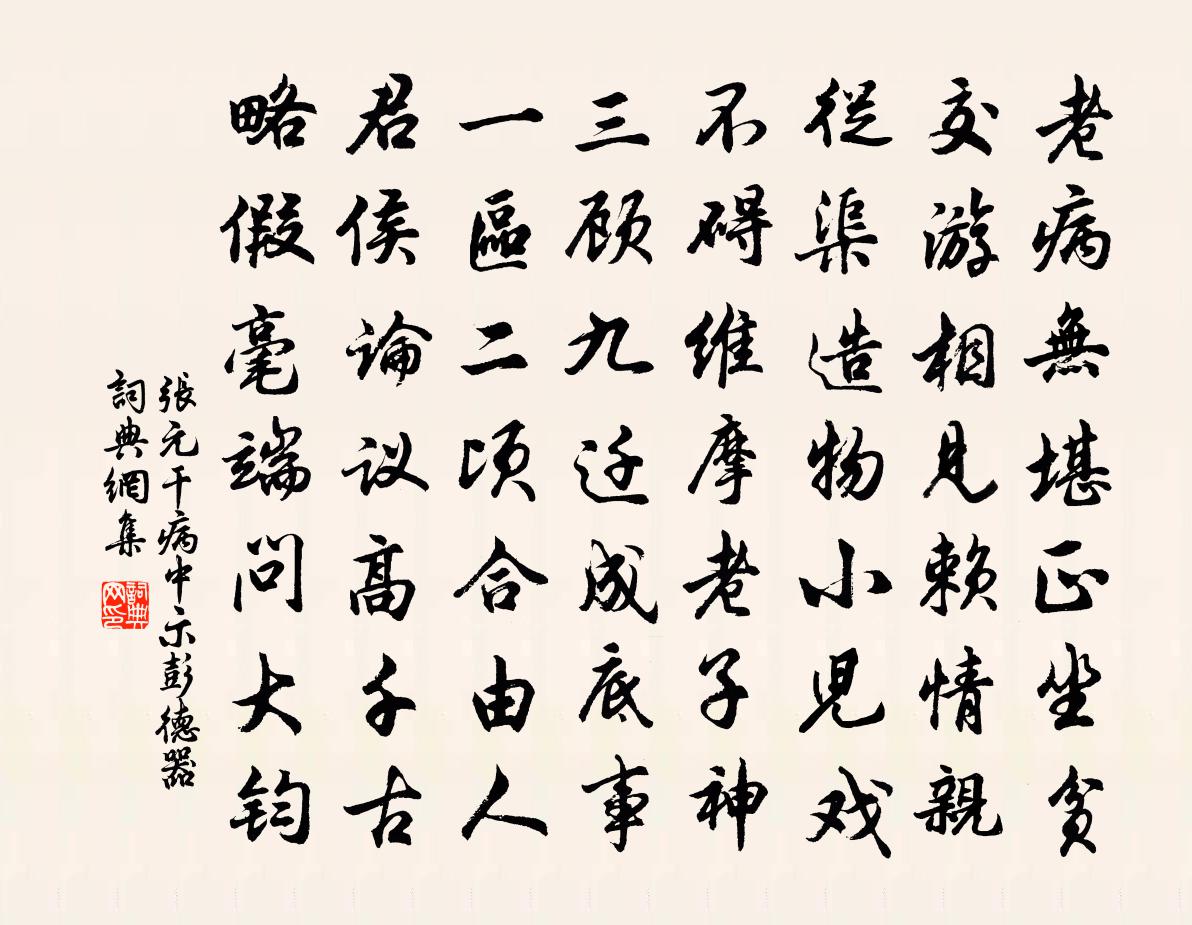 老病無堪正坐貧
交游相見賴情親
從渠造物小児戏
不碍維摩老子神
三顾九迁成底事
一區二顷合由人
君侯論议高千古
略假毫端问大钧
張元干病中示彭德器
詞典網集
詞典网印